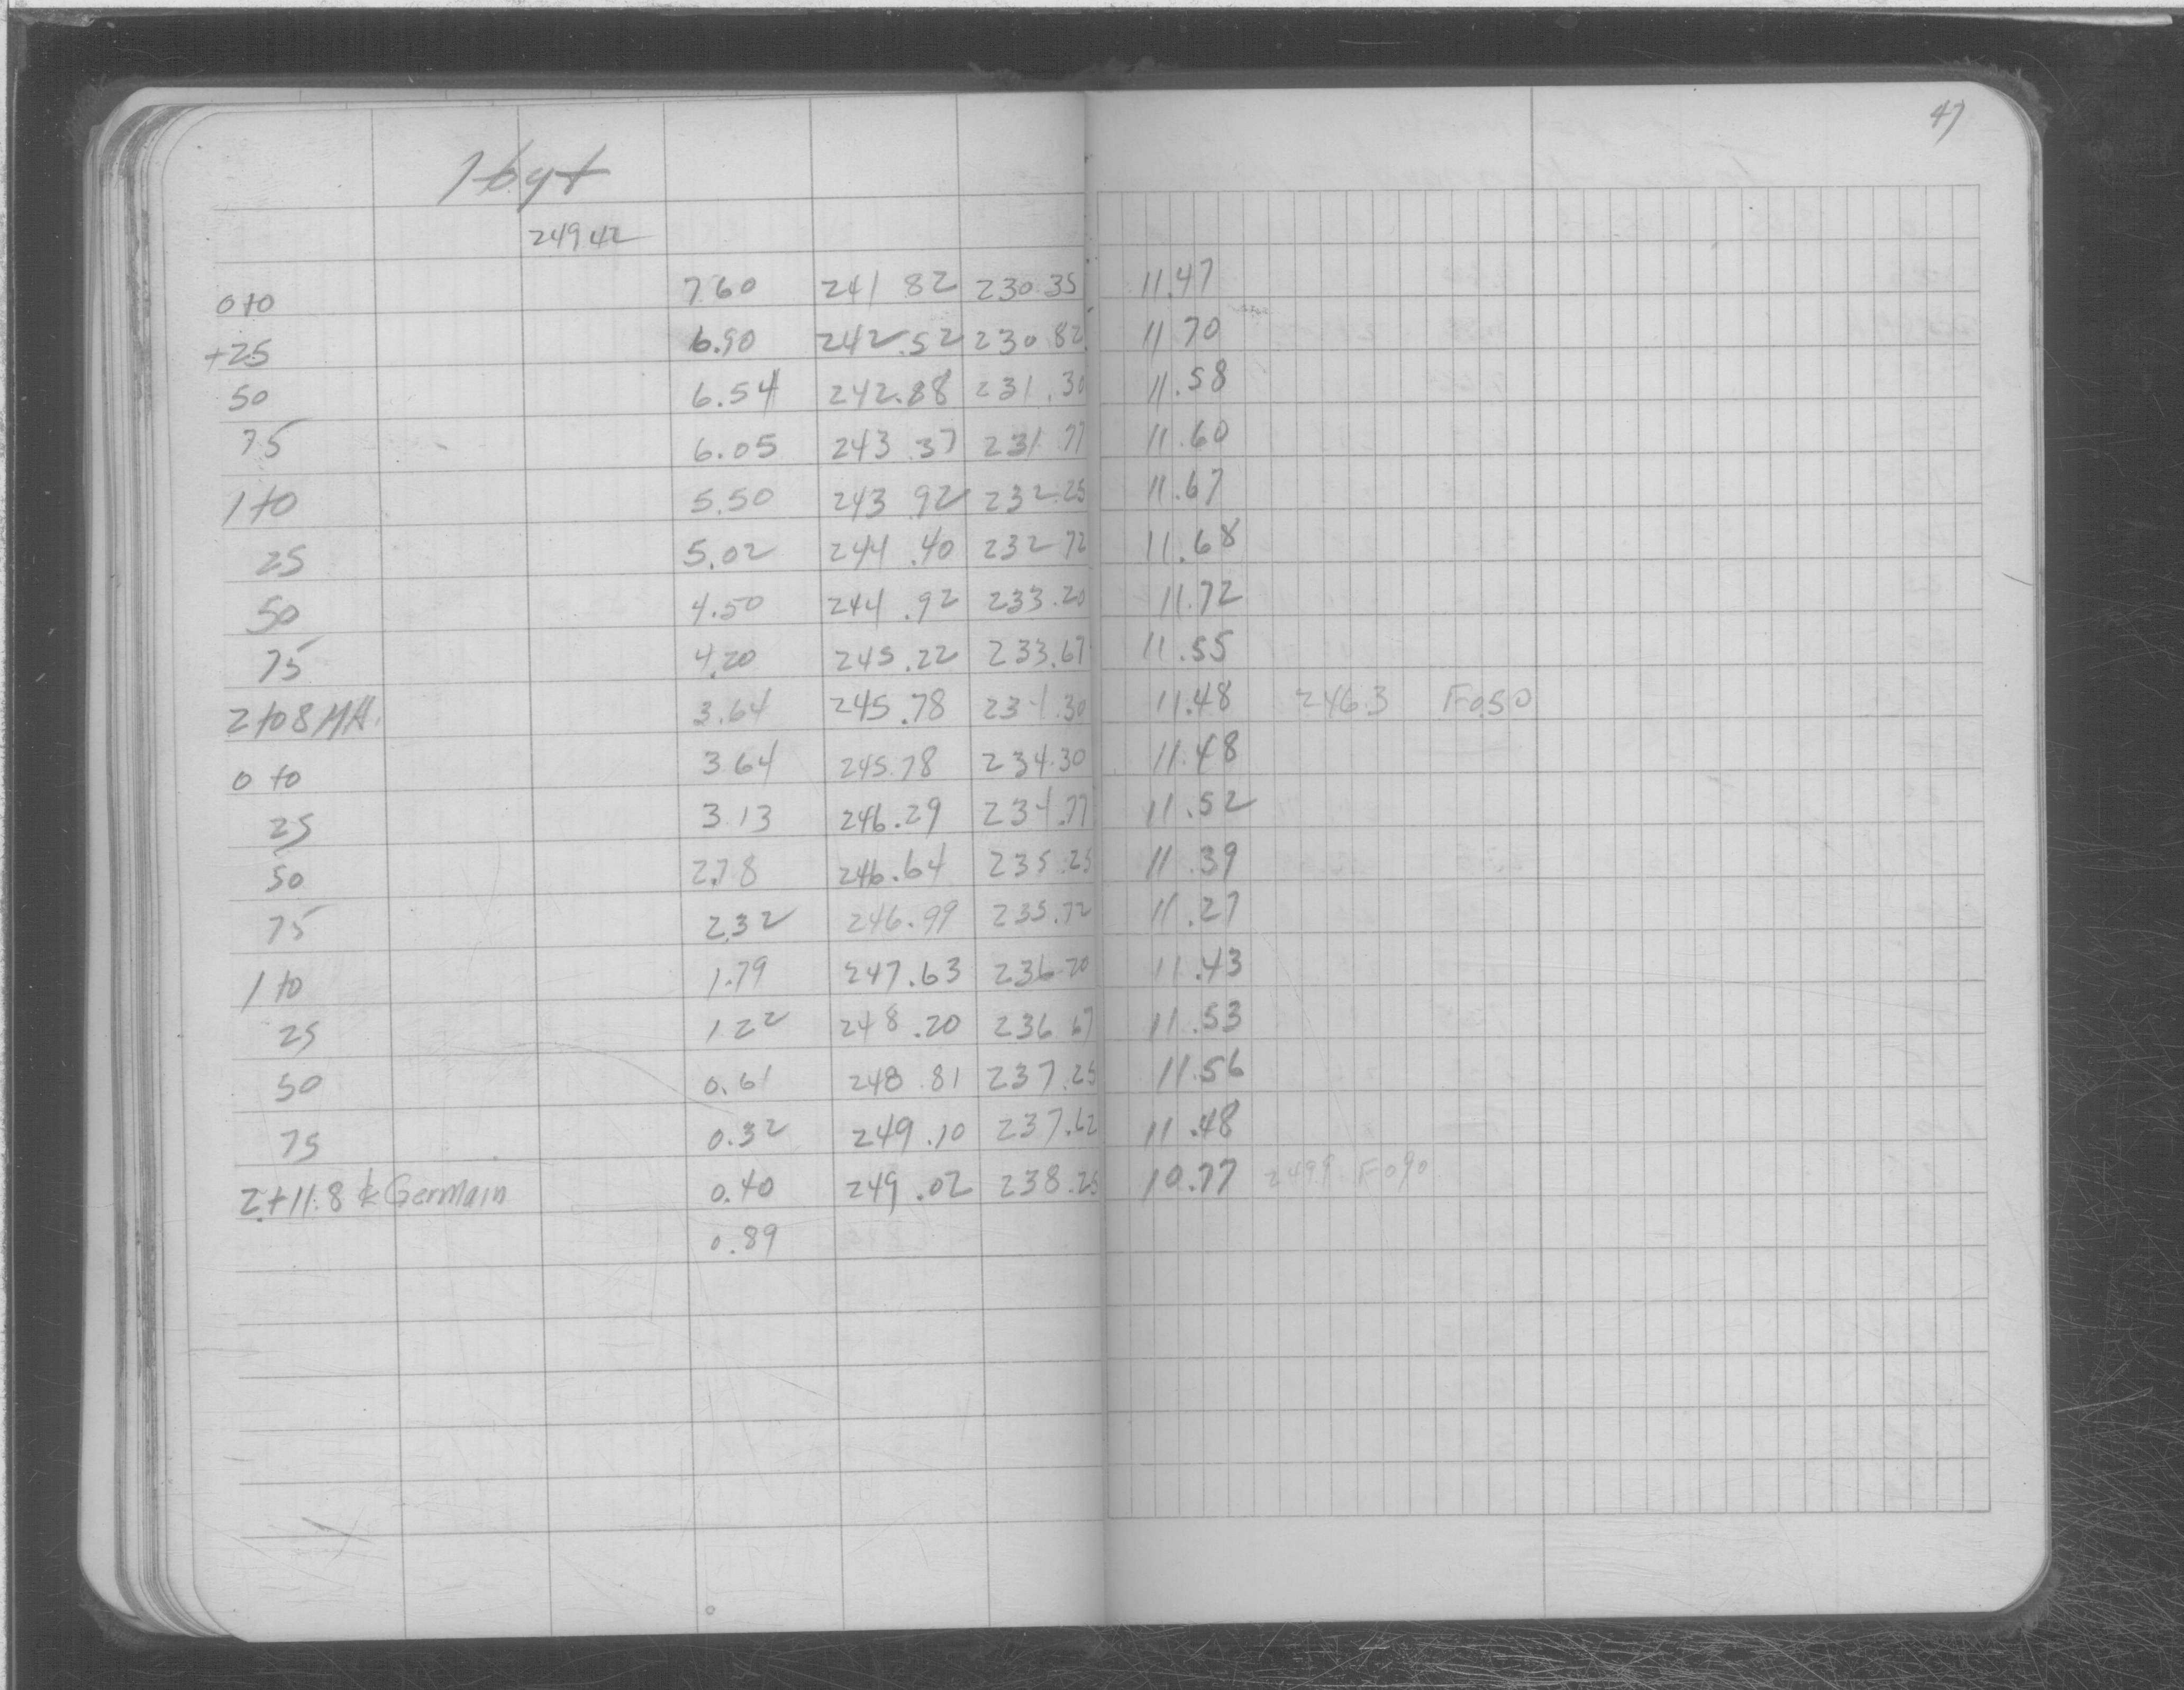 47
249 42
0+0 7.60 241 82 230.35 11.47
+25 6.90 242.52 230 82 11 70
50 6.54 242.88 231.30 11.58
75 6.05 243.37 231.77 11.60
1+0 5.50 243.92 232.25 11.67
25 5.02 244.40 232 72 11.68
50 4.50 244.92 233.20 11.72
75 4.20 245.22 233.67 11.55
2+08 MH. 3.64 245.78 234.30 11.48 246.3 F0.50
0+0 3 64 245.78 234.30 11.48
25 3.13 246.29 234.77 11.52
50 2.78 246.64 235.25 11.39
75 2.32 246.99 235.72 11.27
1+0 1.79 247.63 236.20 11.43
25 1.22 248.20 236 67 11.53
50 0.61 248.81 237.25 11.56
75 0.32 249.10 237.62 11.48
2+11.8 Germain 0.40 249.02 238.25 10.77 249.9 F0.90
0.89